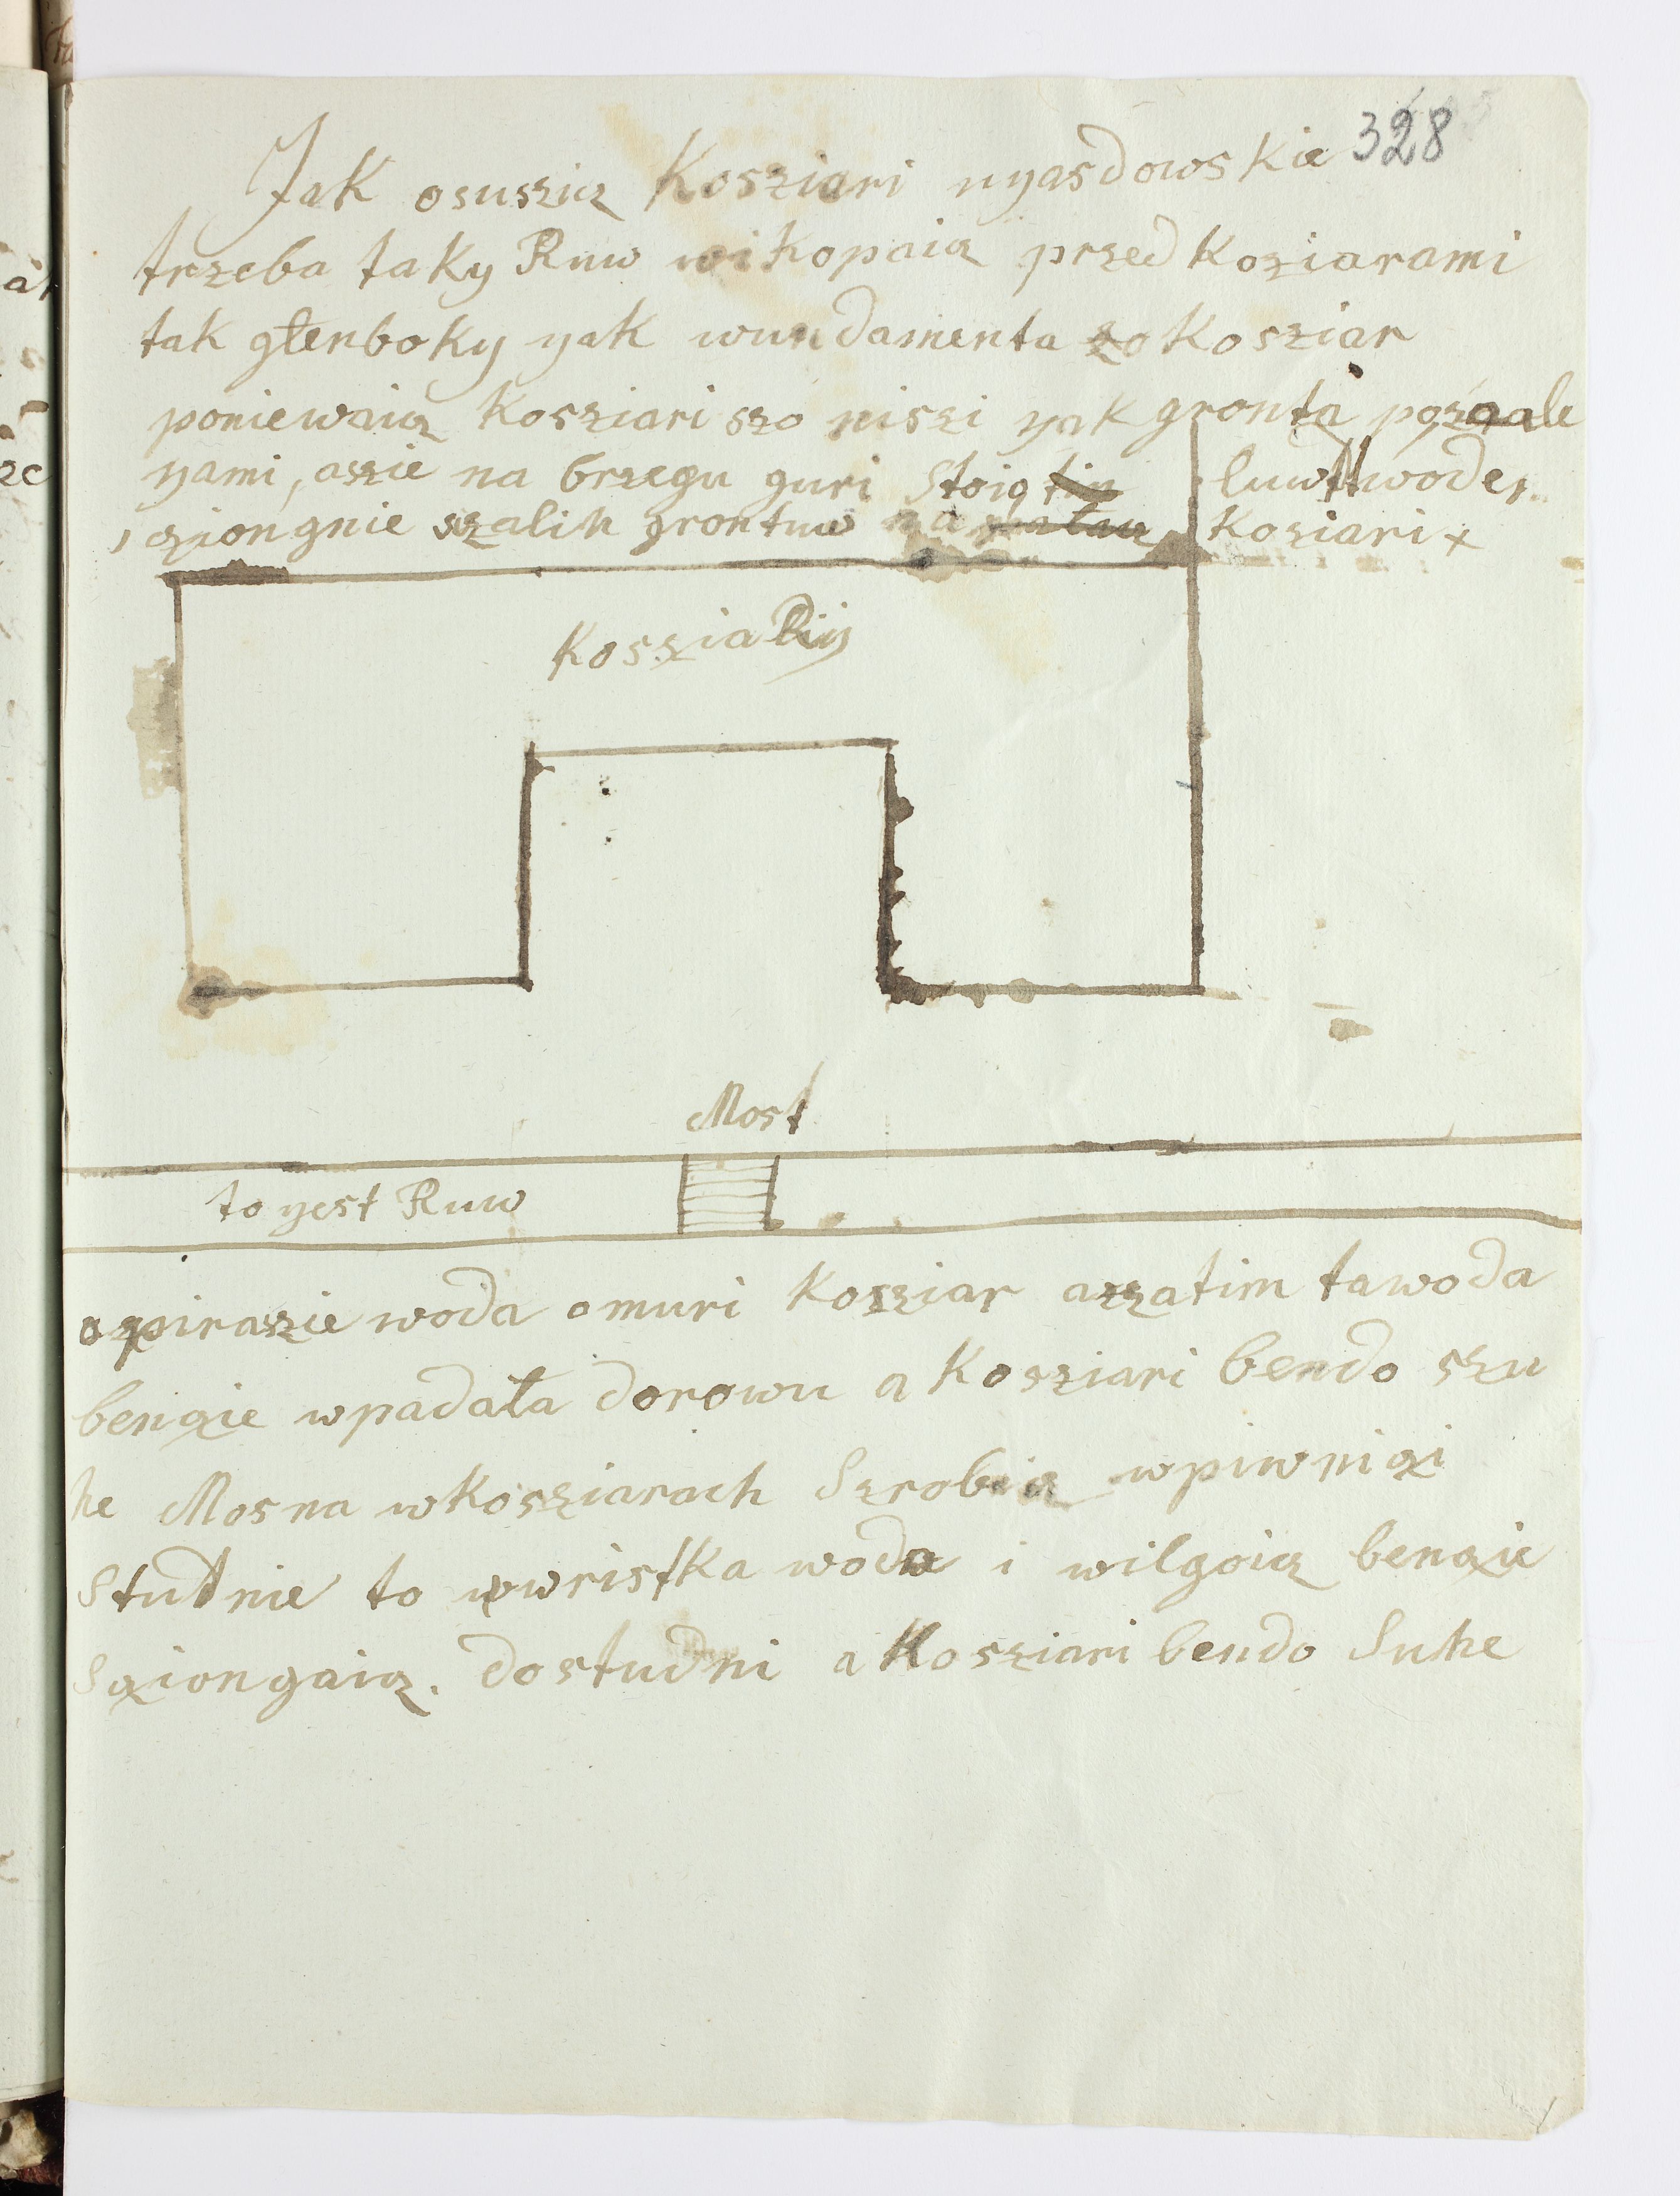 328
Jak osuszicz Kosziari uyasdowskie
trzeba taky Ruw wikopaicz przed Koziarami
tak głenboky yak wundamenta szo Kosziar
poniewaicz Kosziari szo niszi yak gronta pozaale
yami, aszie na brzegu guri Stoio
luwtt wode
cziongnie szalih grontuw na
Koziari x
Kosziarij
Most
to yest Ruw
opiraszie woda o muri Kosziar aszatim ta woda
bengie wpadała dorowu a Kosziari bendo szu
he Mosna wKosziarach Szrobicz wpiwnigi
Studnie to wwristka woda i wilgoicz bengie
Sgiongaicz. dostudni a Kosziari bendo Suhe